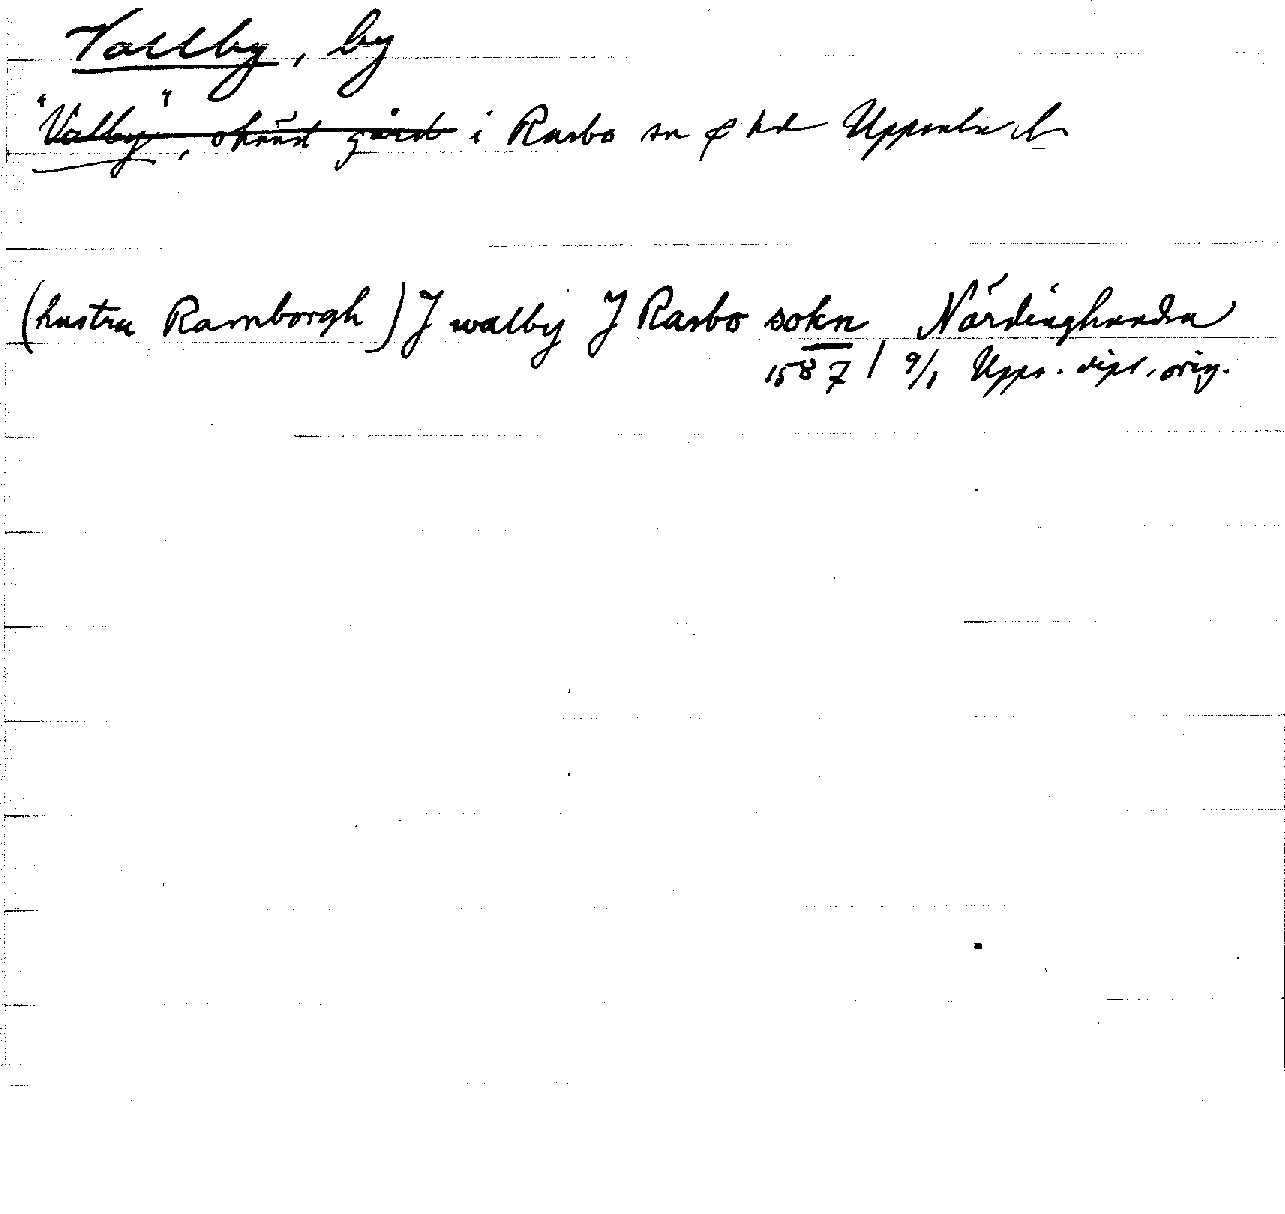 Vallby, by
"Valby", okänd gård i Rasbo sn o hd Uppsala l.
(hustru Ramborgh) J walby J Rasbo sokn Närdinghundra
1587 9/1 Upps. dipl. orig.